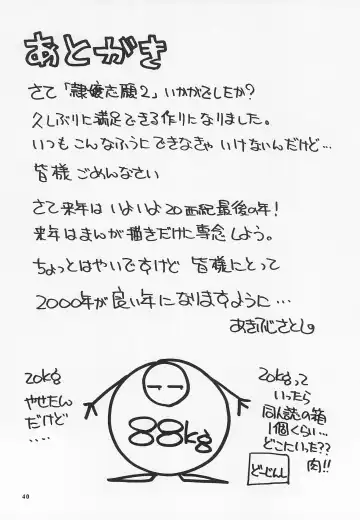 あとがき
さて「隷嬢志願2」いかがでしたか?
久しぶりに満足できる作りになりました。
いつもこんなふうにできなきゃいけないんだけど…
皆様ごめんなさい
さて来年はいよいよ20西紀最後の年!
来年はまんが描きだけに専念しよう。
ちょっとはやいですけど皆様にとって
2000年が良い年になりますように…
あきふじさとし
20kg
やせたん
だけど
‥‥
88kg
20kgって
いったら
同人誌の箱
1個くらい…
どこたいった??
肉!!
どーじんし
40